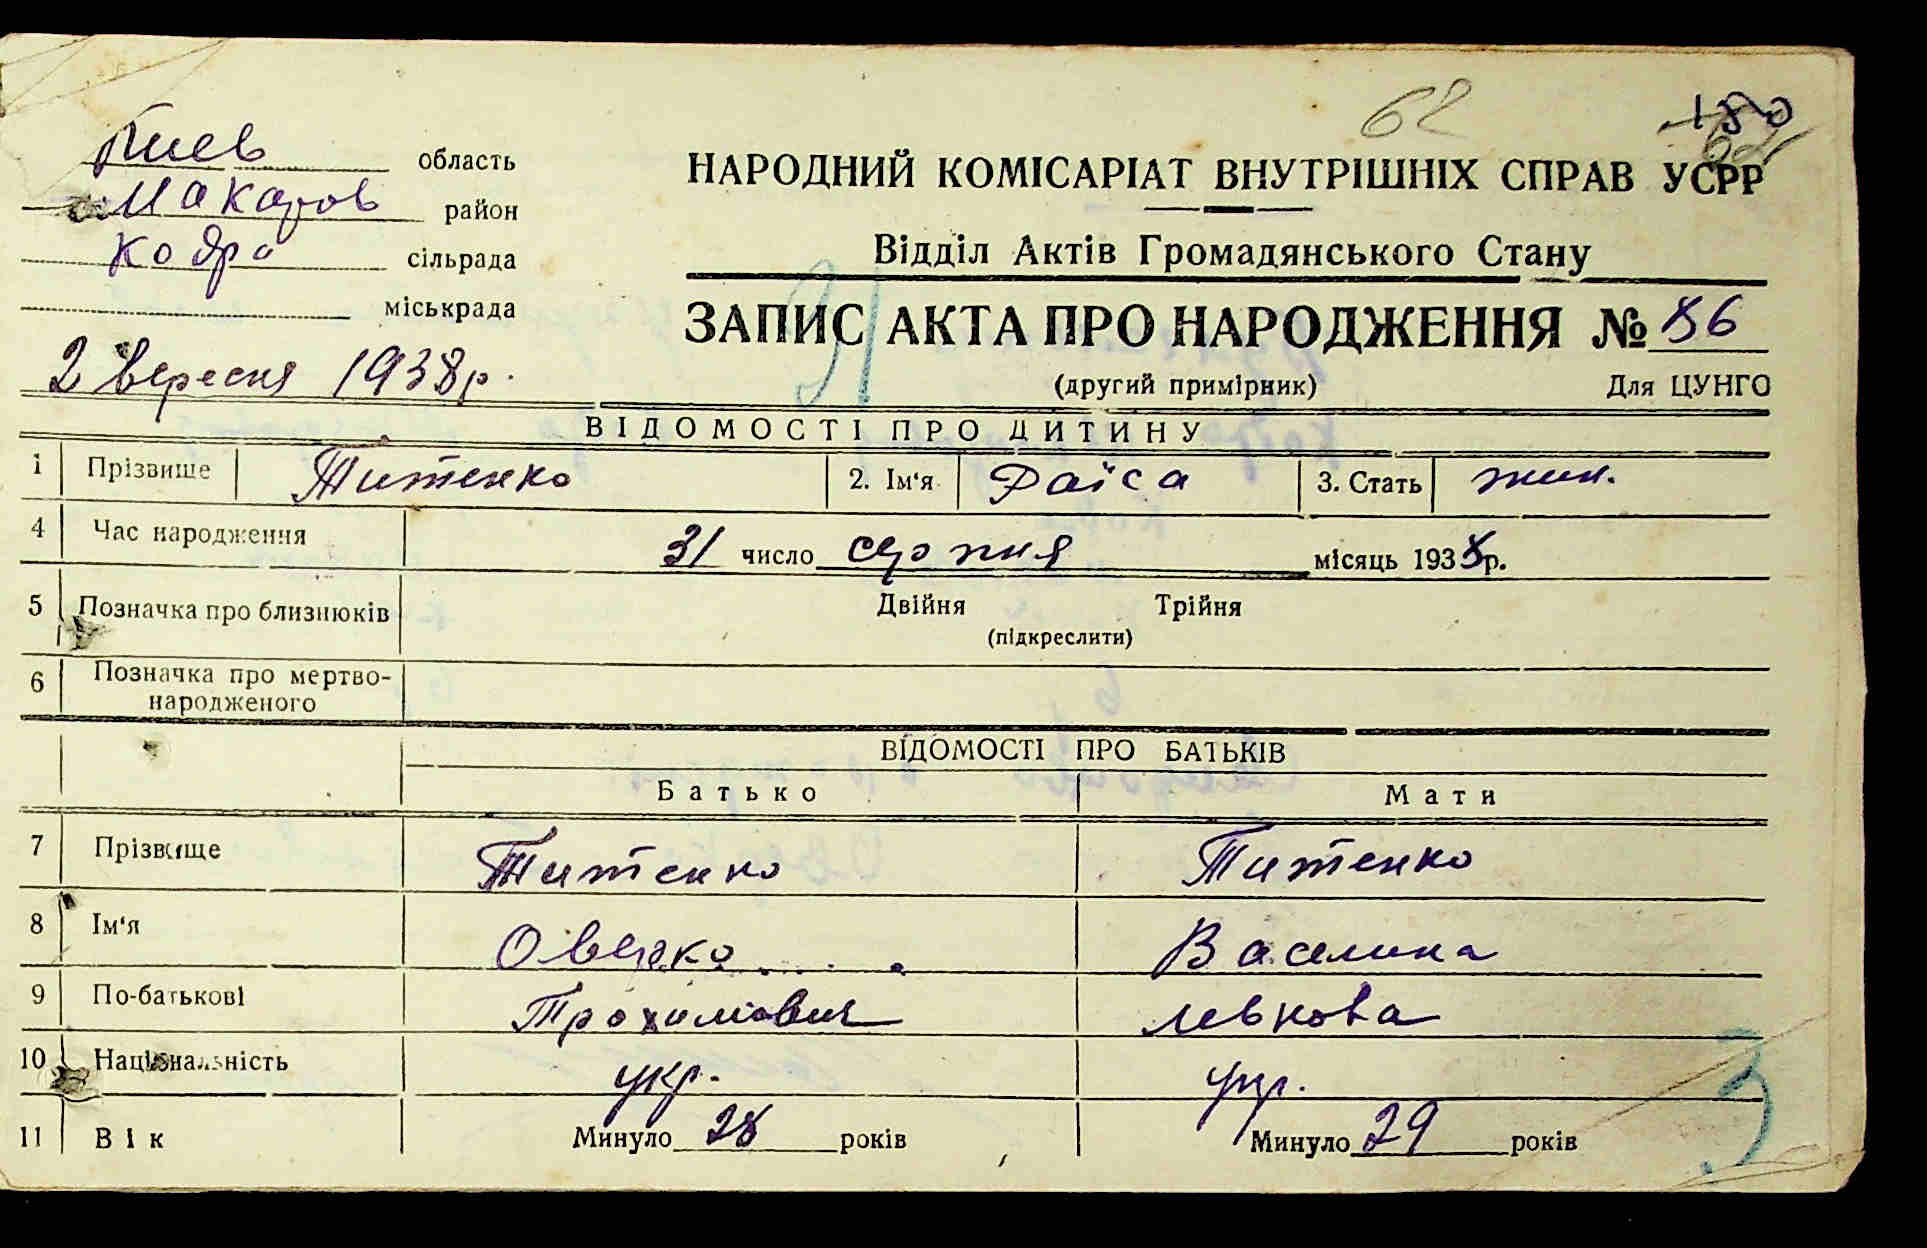 62
Киев область
Макаров район
Кодра сільрада
міськрада
2 вересня 1938 р.
НАРОДНИЙ КОМІСАРІАТ ВНУТРІШНІХ СПРАВ УСРР
Відділ Актів Громадянського Стану
ЗАПИС АКТА ПРО НАРОДЖЕННЯ № 86
(другий примірник) Для ЦУНГО
ВІДОМОСТІ ПРО ДИТИНУ
1 Прізвище Титенко 2. Ім'я Раїса 3. Стать жин.
4 Час народження 31 число серпня місяць 1938 р.
5 Позначка про близнюків Двійня Трійня
(підкреслити)
6 Позначка про мертво-
народженого
ВІДОМОСТІ ПРО БАТЬКІВ
Батько Мати
7 Прізвище Титенко Титенко
8 Ім'я Оверко Василина
9 По-батькові Трохимович Левкова
10 Національність укр. укр.
11 Вік Минуло 28 років Минуло 29 років
3